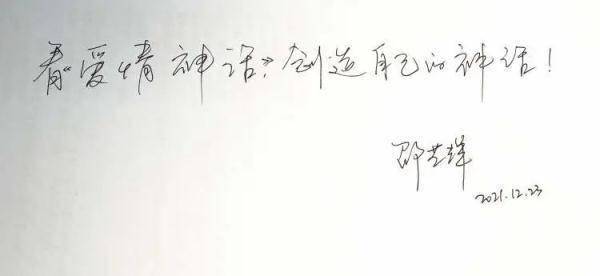 看《爱情神话》创造自己的神话!
邵艺辉
2021.12.23